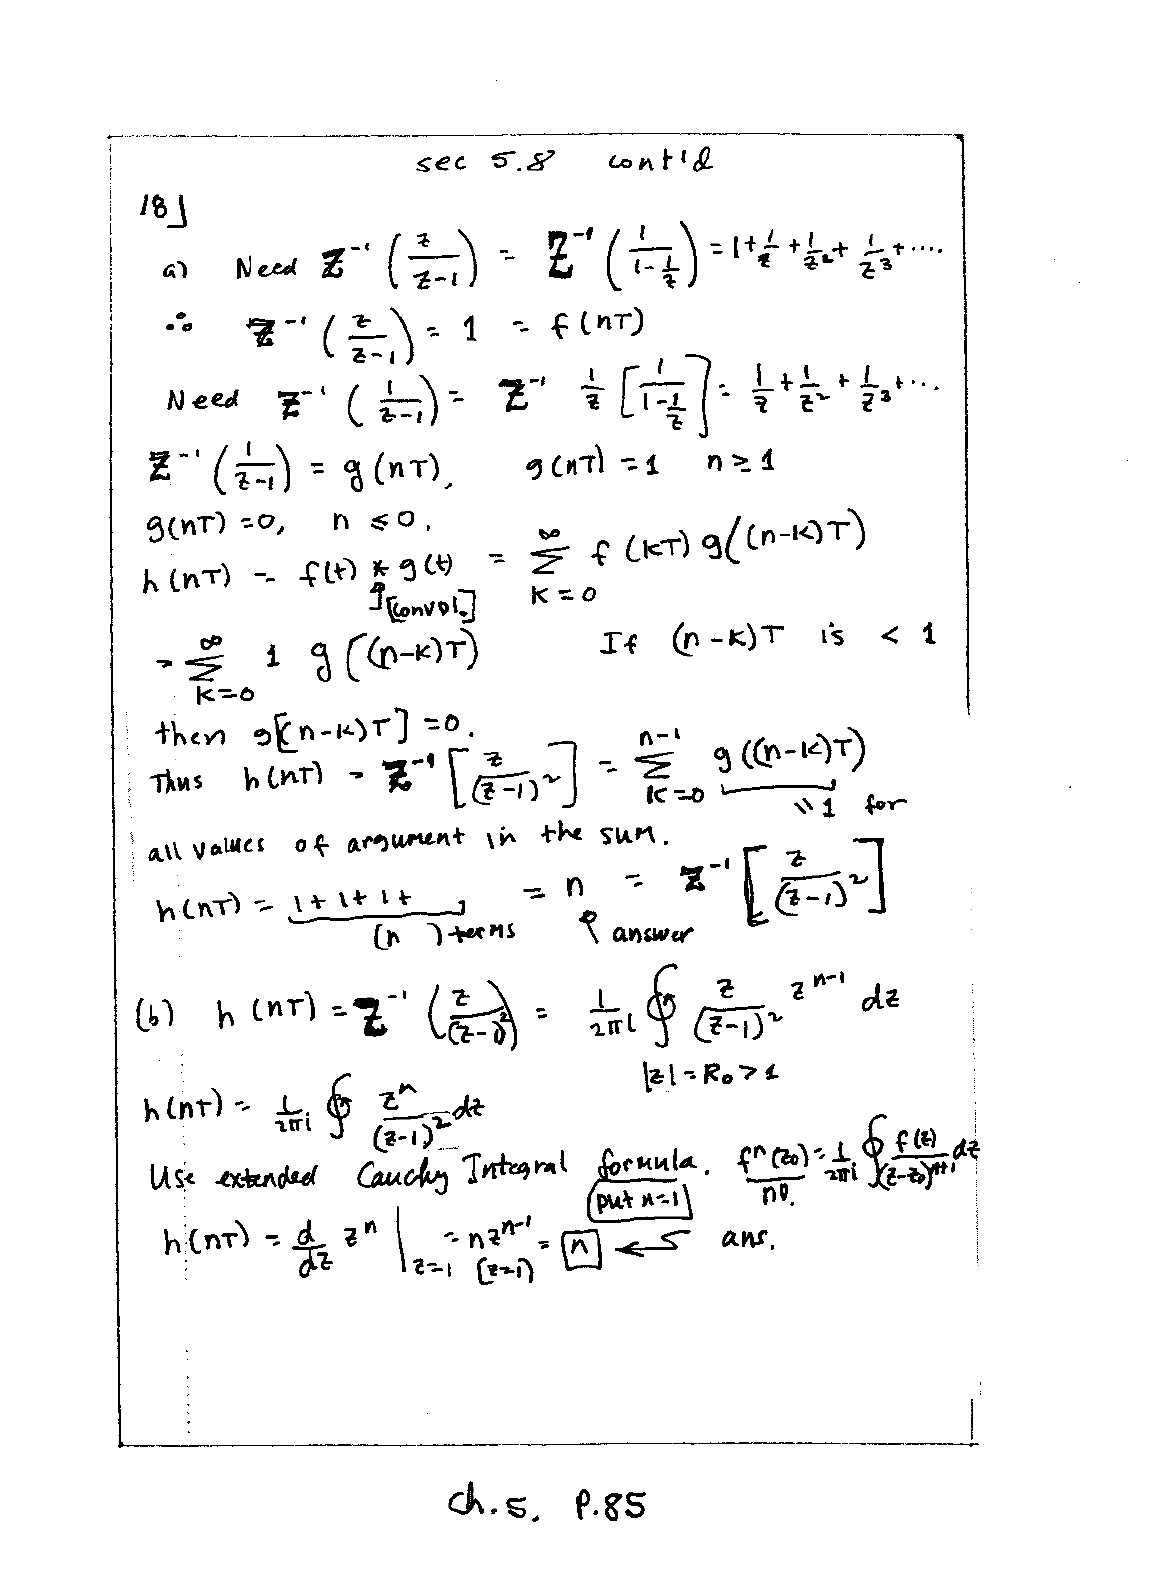 sec 5.8 cont'd
18⌋
a) Need Z⁻¹ (z/(z-1)) = Z⁻¹ (1/(1-1/z)) = 1+1/z+1/z²+1/z³+....
∴ Z⁻¹ (z/(z-1)) = 1 = f(nT)
Need Z⁻¹ (1/(z-1)) = Z⁻¹ 1/z [1/(1-1/z)] = 1/z+1/z²+1/z³+...
Z⁻¹ (1/(z-1)) = g(nT), g(nT) = 1 n ≥ 1
g(nT) = 0, n ≤ 0.
h(nT) = f(t) * g(t) = ∑_{k=0}^{∞} f(kT) g((n-k)T)
[convol.]
= ∑_{k=0}^{∞} 1 g((n-k)T) If (n-k)T is < 1
then g[(n-k)T] = 0.
Thus h(nT) = Z⁻¹ [z/(z-1)²] = ∑_{k=0}^{n-1} g((n-k)T)
= 1 for
all values of argument in the sum.
h(nT) = 1+1+1+ = n = Z⁻¹ [z/(z-1)²]
(n ) terms answer
(b) h(nT) = Z⁻¹ (z/(z-1)²) = 1/(2πi) ∮ z/(z-1)² zⁿ⁻¹ dz
|z| = R₀ > 1
h(nT) = 1/(2πi) ∮ zⁿ/(z-1)² dz
Use extended Cauchy Integral formula. fⁿ(z₀)/n! = 1/(2πi) ∮ f(z)/(z-z₀)ⁿ⁺¹ dz
put n=1
h(nT) = d/dz zⁿ |_{z=1} = nzⁿ⁻¹ (z=1) = n ← ans.
ch. 5, P.85